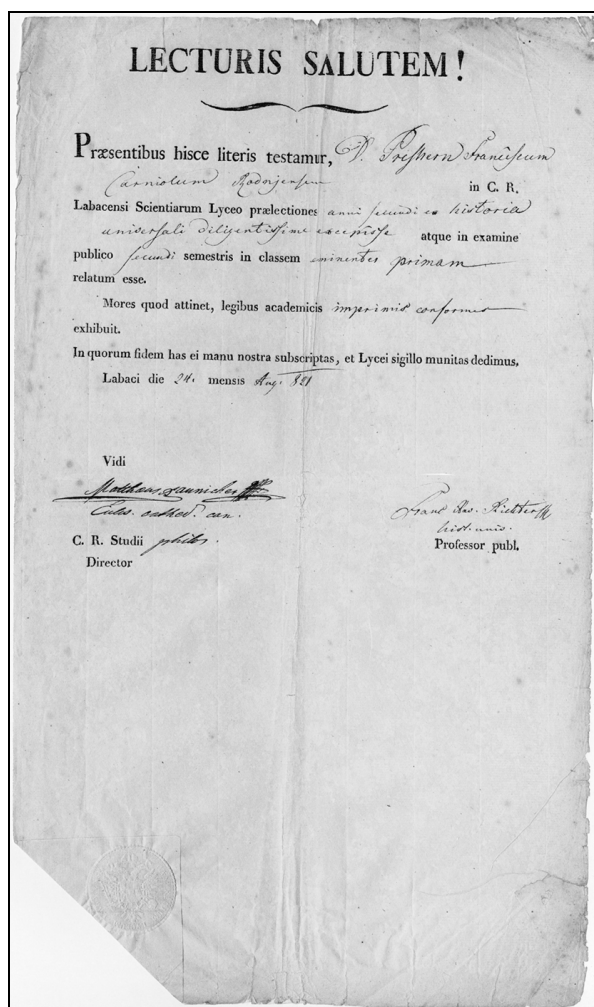 LECTURIS SALUTEM!
Præsentibus hisce literis testamur, D. Preshern Franciscum
Carniolum Rodnjensem in C. R.
Labacensi Scientiarum Lyceo prælectiones anni secundi ex historia
universali diligentissime excepisse atque in examine
publico secundi semestris in classem eminenter primam
relatum esse.
Mores quod attinet, legibus academicis imprimis conformes
exhibuit.
In quorum fidem has ei manu nostra subscriptas, et Lycei sigillo munitas dedimus.
Labaci die 24. mensis Aug. 821
Vidi
Matthaeus Raunicher
Eccles. cathed. can.
C. R. Studii philos.
Director
Franc Xav. Richter
hist. univ.
Professor publ.